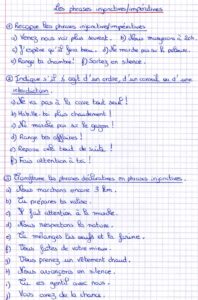 Les phrases injonctives/impératives
① Recopie les phrases injonctives/impératives
a) Venez nous voir plus souvent. b) Nous mangeons à 20h.
c) J'espère qu'il fera beau. d) Ne marche pas sur la pelouse.
e) Range ta chambre! f) Sortez en silence.
② Indique s'il s'agit d'un ordre, d'un conseil ou d'une
interdiction.
a) Ne va pas à la cave tout seul!
b) Habille-toi plus chaudement!
c) Ne marche pas sur le gazon!
d) Range tes affaires!
e) Repose cela tout de suite!
f) Fais attention à toi!
③ Transforme les phrases déclaratives en phrases injonctives.
a) Nous marchons encore 3 km.
b) Tu prépares ta valise.
c) Il fait attention à la marche.
d) Nous respectons la nature.
e) Tu mélanges les oeufs et la farine.
f) Vous faites de votre mieux.
g) Vous prenez un vêtement chaud.
h) Nous avançons en silence.
i) Tu es gentil avec nous.
j) Vous avez de la chance.